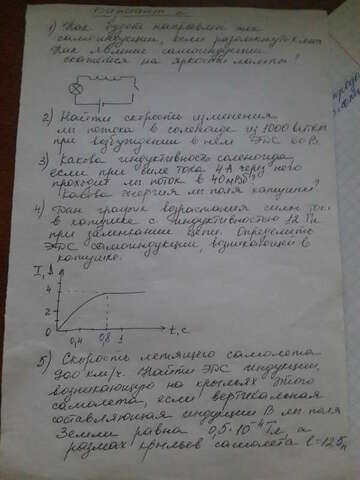 Вариант 2
1) Как будет направлен ток
самоиндукции, если разомкнуть ключ
Как явление самоиндукции
скажется на яркости лампы?
2) Найти скорость изменения
м. потока в соленоиде из 1000 витков
при возбуждении в нём ЭДС 60В.
3) Какова индуктивность соленоида,
если при силе тока 4А через него
проходит м. поток в 40мВб?
Какова энергия м. поля катушки?
4) Дан график возрастания силы тока
в катушке с индуктивностью 12 Гн
при замыкании цепи. Определить
ЭДС самоиндукции, возникающей в
катушке.
I, А
4
2
0
0,4 0,8 1 t, с
5) Скорость летящего самолета
900 км/ч. Найти ЭДС индукции,
возникающую на крыльях этого
самолета, если вертикальная
составляющая индукции В м. поля
Земли равна 0,5·10⁻⁴ Тл, а
размах крыльев самолета l=12,5м